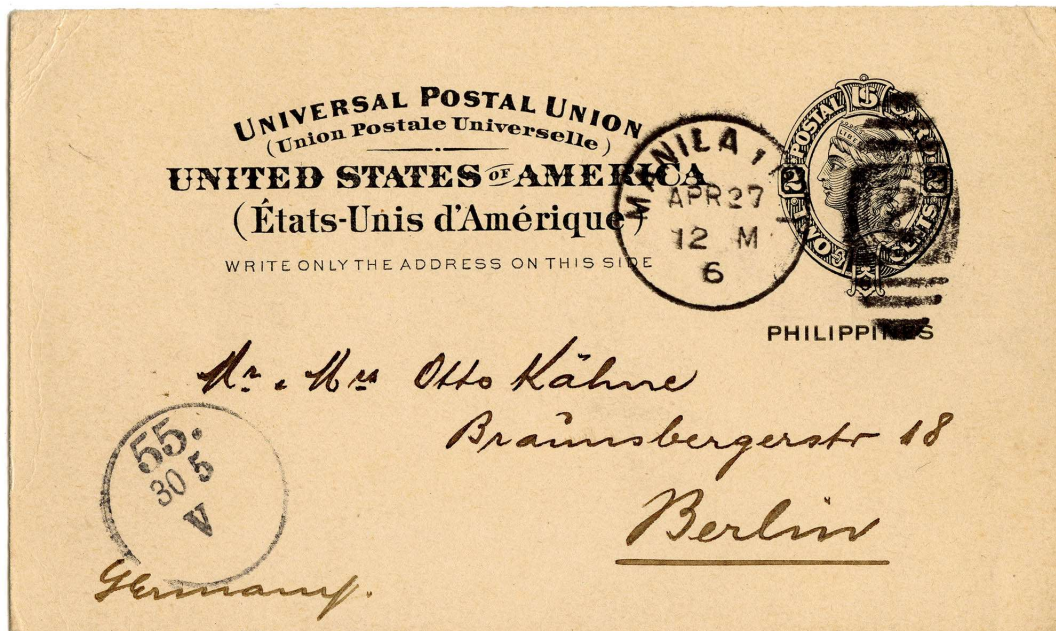 UNIVERSAL POSTAL UNION
(Union Postale Universelle)
UNITED STATES OF AMERICA
(États-Unis d'Amérique)
WRITE ONLY THE ADDRESS ON THIS SIDE
MANILA
APR 27
12 M
6
POSTAL CARD
2 2
LIBERTY
PHILIPPINES
Mr. & Mrs Otto Kähne
Braunsbergerstr 18
Berlin
55.
30 5
V
Germany.